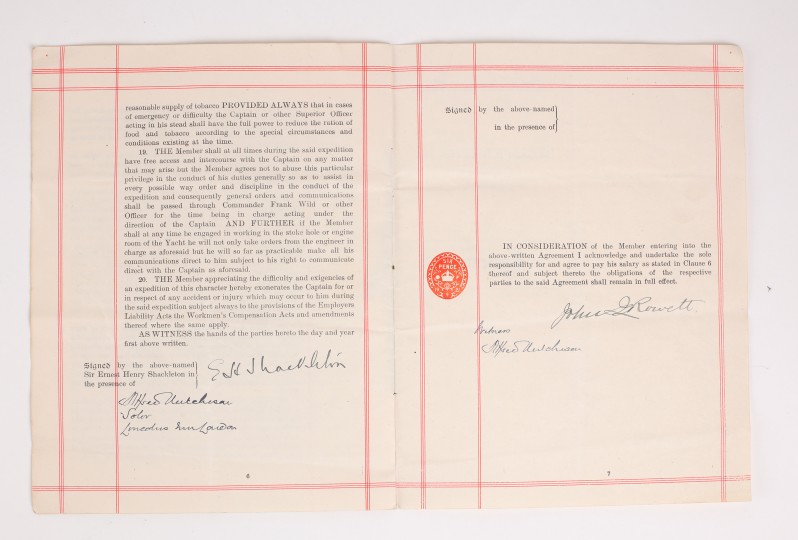 reasonable supply of tobacco PROVIDED ALWAYS that in cases
of emergency or difficulty the Captain or other Superior Officer
acting in his stead shall have the full power to reduce the ration of
food and tobacco according to the special circumstances and
conditions existing at the time.
19. THE Member shall at all times during the said expedition
have free access and intercourse with the Captain on any matter
that may arise but the Member agrees not to abuse this particular
privilege in the conduct of his duties generally so as to assist in
every possible way order and discipline in the conduct of the
expedition and consequently general orders and communications
shall be passed through Commander Frank Wild or other
Officer for the time being in charge acting under the
direction of the Captain AND FURTHER if the Member
shall at any time be engaged in working in the stoke hole or engine
room of the Yacht he will not only take orders from the engineer in
charge as aforesaid but he will so far as practicable make all his
communications direct to him subject to his right to communicate
direct with the Captain as aforesaid.
20. THE Member appreciating the difficulty and exigencies of
an expedition of this character hereby exonerates the Captain for or
in respect of any accident or injury which may occur to him during
the said expedition subject always to the provisions of the Employers
Liability Acts the Workmen's Compensation Acts and amendments
thereof where the same apply.
AS WITNESS the hands of the parties hereto the day and year
first above written.
Signed by the above-named
Sir Ernest Henry Shackleton in
the presence of
E H Shackleton
Alfred Hutchison
Solr
Lincolns Inn London
6
Signed by the above-named
in the presence of
SIX
PENCE
IN CONSIDERATION of the Member entering into the
above-written Agreement I acknowledge and undertake the sole
responsibility for and agree to pay his salary as stated in Clause 6
thereof and subject thereto the obligations of the respective
parties to the said Agreement shall remain in full effect.
John Q Rowett
Witness
Alfred Hutchison
7